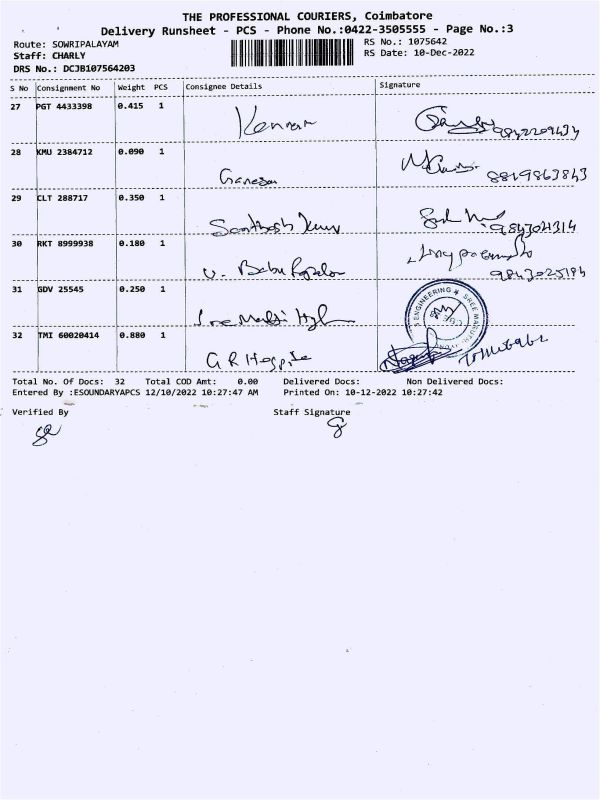 THE PROFESSIONAL COURIERS, Coimbatore
Delivery Runsheet - PCS - Phone No.:0422-3505555 - Page No.:3
Route: SOWRIPALAYAM RS No.: 1075642
Staff: CHARLY RS Date: 10-Dec-2022
DRS No.: DCJB107564203
S No Consignment No Weight PCS Consignee Details Signature
27 PGT 4433398 0.415 1
Kannan
28 KMU 2384712 0.090 1
Ganesan 8819863843
29 CLT 288717 0.350 1
Santhosh Kumar 984304314
30 RKT 8999938 0.180 1
V. Babu 9843025194
31 GDV 25545 0.250 1
ENGINEERING SREE MARUTHI
CBE
32 TMI 60020414 0.880 1
G R
Total No. Of Docs: 32 Total COD Amt: 0.00 Delivered Docs: Non Delivered Docs:
Entered By :ESOUNDARYAPCS 12/10/2022 10:27:47 AM Printed On: 10-12-2022 10:27:42
Verified By Staff Signature